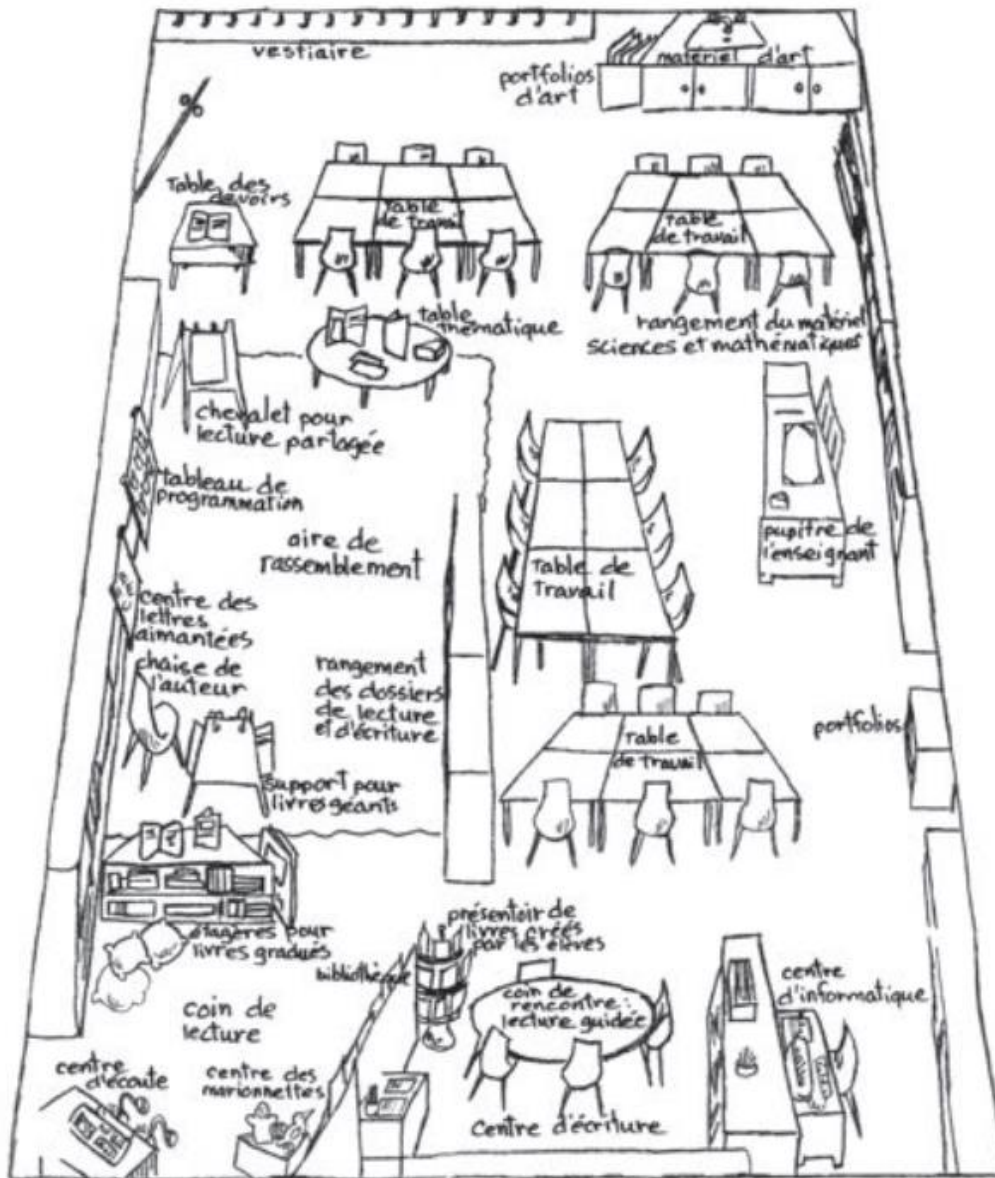 vestiaire
matériel d'art
portfolios
d'art
Table des
devoirs
Table
de travail
Table
de travail
table
thématique
rangement du matériel
sciences et mathématiques
chevalet pour
lecture partagée
tableau de
programmation
aire de
rassemblement
pupitre de
l'enseignant
Table de
Travail
centre des
lettres
aimantées
chaise de
l'auteur
rangement
des dossiers
de lecture
et d'écriture
portfolios
Table
de travail
support pour
livres géants
étagères pour
livres gradués
présentoir de
livres créés
par les élèves
bibliothèque
coin de
rencontre:
lecture guidée
centre
d'informatique
coin de
lecture
centre
d'écoute
centre des
marionnettes
Centre d'écriture